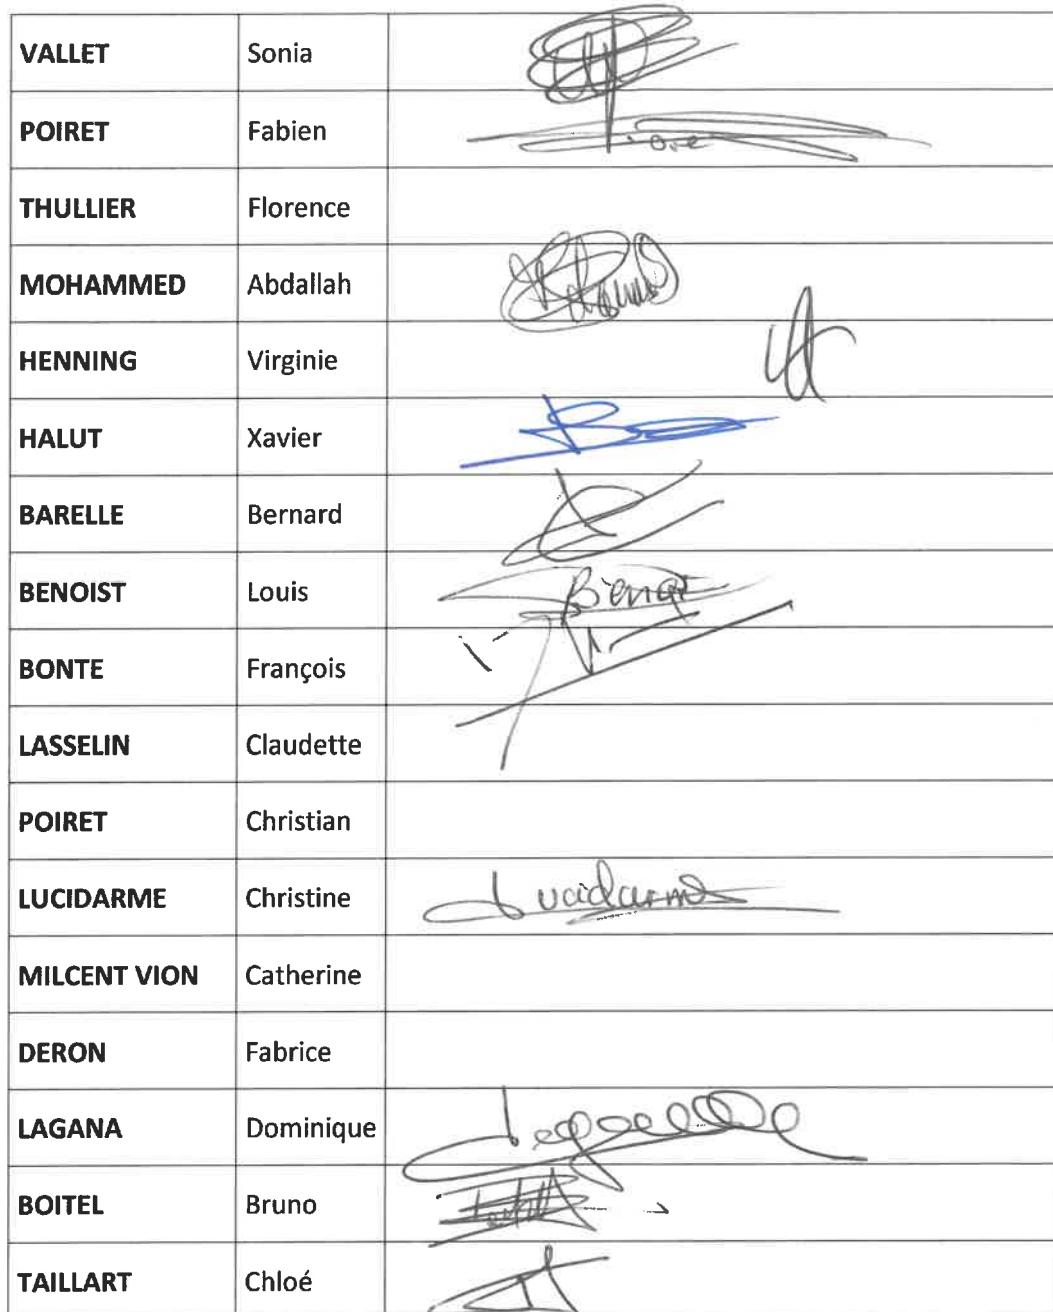 VALLET Sonia
POIRET Fabien
THULLIER Florence
MOHAMMED Abdallah
HENNING Virginie
HALUT Xavier
BARELLE Bernard
BENOIST Louis
BONTE François
LASSELIN Claudette
POIRET Christian
LUCIDARME Christine Lucidarme
MILCENT VION Catherine
DERON Fabrice
LAGANA Dominique
BOITEL Bruno
TAILLART Chloé